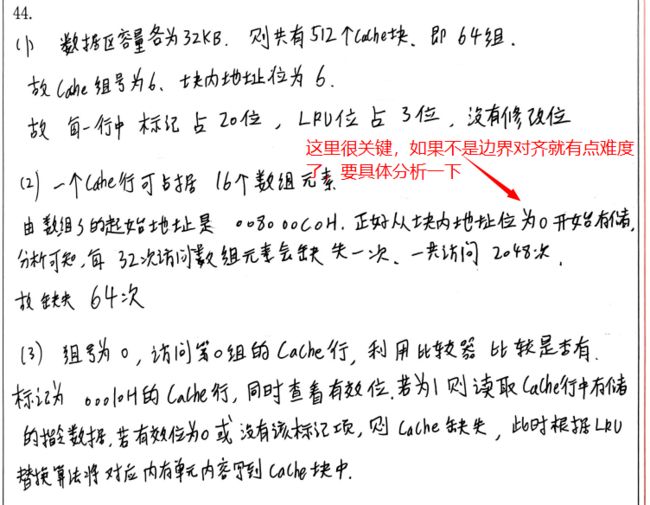 44.
(1) 数据区容量各为32KB. 则共有512个Cache块、即64组.
故Cahe组号为6、块内地址位为6.
故 每一行中 标记占20位, LRU位占3位, 没有修改位
这里很关键，如果不是边界对齐就有点难度
了，要具体分析一下
(2) 一个Cahe行可占据 16个数组元素
由数组S的起始地址是 008000C0H. 正好从块内地址位为0开始存储,
分析可知, 每 32次访问数组元素会缺失一次、一共访问 2048次,
故缺失 64次
(3) 组号为0, 访问第0组的Cache行, 利用比较器 比较是否有.
标记为 00010H的Cache行, 同时查看有效位. 若为1则读取Cache行中存储
的指令数据. 若有效位为0或没有该标记项, 则Cache缺失, 此时根据LRU
替换算法将对应内存单元内容写到Cache块中.